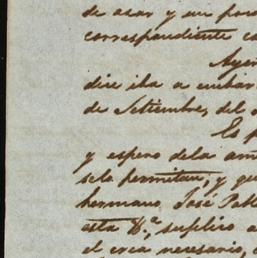 de azar y un po
correspondiente c
Ayer
dice iba a embar
de Setiembre, del
Es p
y espero dela am
sela permitan, y qu
hermano, José Pabl
esta Va., suplico a
el crea nesesario,